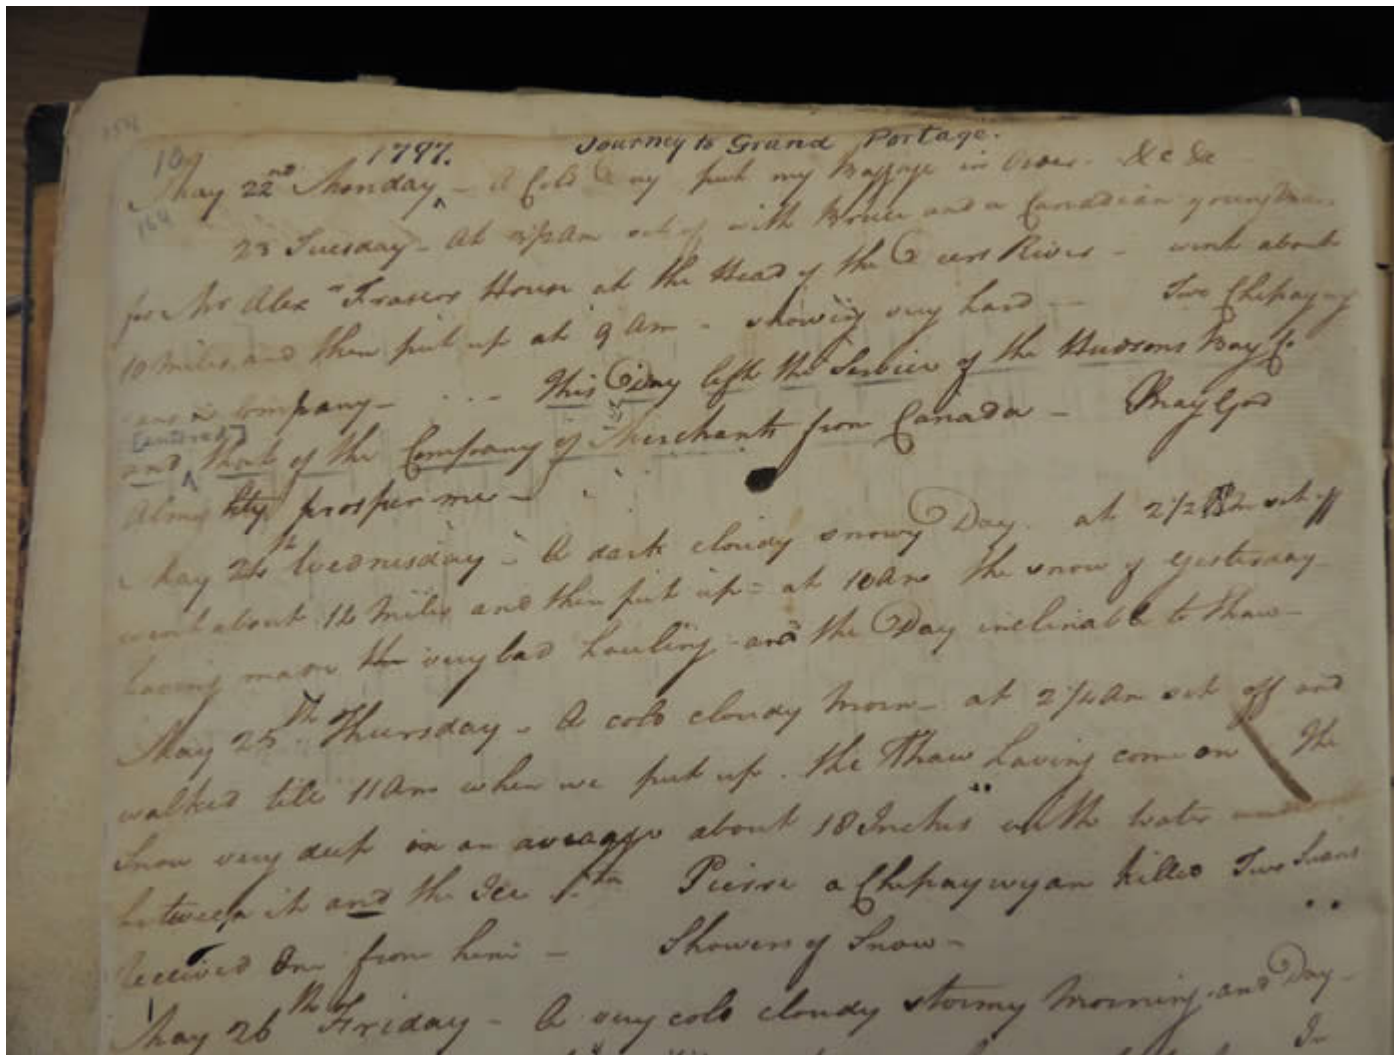 109
164
1797. Journey to Grand Portage.
May 22nd Monday - A Cold Day put my Baggage in Order &c &c
23 Tuesday - At 3 1/2 Am set off with Bruce and a Canadian young Man
for Mr Alexr Frasers House at the Head of the Deers River - went about
10 Miles and then put up at 9 Am - snowing very hard - Two Chepawy
ans in Company - This Day left the Service of the Hudsons Bay Co
[entered]
and ^ that of the Company of Merchants from Canada - May God
Almighty prosper me -
May 24th Wednesday - A dark cloudy snowy Day. at 2 1/2 Am set off
went about 12 Miles and then put up - at 10 Am the snow of yesterday
having made the very bad hauling and the Day inclinable to thaw -
May 25th Thursday - A cold cloudy Morn - at 2 1/4 Am set off and
walked till 11 Am when we put up. the Thaw having come on The
Snow very deep on an average about 18 Inches with Water
between it and the Ice Pierre a Chepaywyan killed Two Swans
received One from him - Showers of Snow -
May 26th Friday - A very cold cloudy stormy Morning and Day -
In